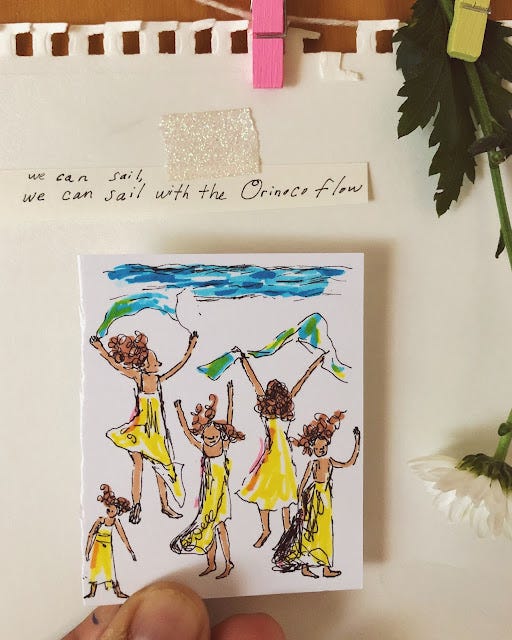 we can sail,
we can sail with the Orinoco flow